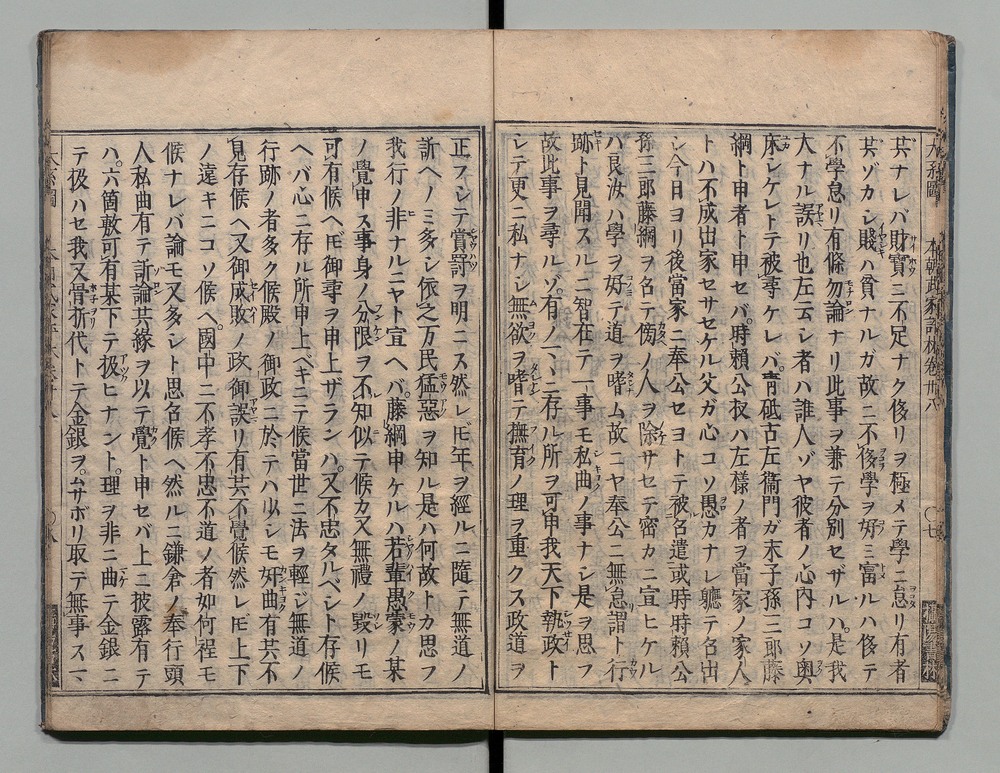 其ナレバ財寳ニ不足ナク侈リヲ極メテ學ニ怠リ有者
其ソカシ賤ハ貧ナルガ故ニ不後學ヲ好ミ富ルハ侈テ
不學怠リ有條勿論ナリ此事ヲ兼テ分別セザルハ是我
大ナル誤リ也左云シ者ハ誰人ゾヤ彼者ノ心内コソ奥
床シケレトテ被尋ケレバ青砥古左衞門ガ末子孫三郎藤
綱ト申者ト申セバ時頼公扨ハ左様ノ者ヲ當家ノ家人
トハ不成出家セサセケル父ガ心コソ愚カナレ軈テ召出
シ今日ヨリ後當家ニ奉公セヨトテ被召遣或時時頼公
孫三郎藤綱ヲ召テ傍ノ人ヲ除サセテ密カニ宣ヒケル
ハ良汝ハ學ヲ好テ道ヲ嗜ム故ニヤ奉公ニ無怠謂ト行
跡ト見聞スルニ智在テ一事モ私曲ノ事ナシ是ヲ思フ
故此事ヲ尋ルゾ有ノ丶ニ存ル所ヲ可申我天下執政ト
シテ更ニ私ナシ無欲ヲ嗜テ撫育ノ理ヲ重クス政道ヲ
本朝武家評林卷卅八
〇七
正フシテ賞罰ヲ明ニス然レ𪜈年ヲ經ルニ隨テ無道ノ
訴ヘノミ多シ依之万民猛惡ヲ知ル是ハ何故トカ思フ
我行ノ非ナルニヤト宣ヘバ藤綱申ケルハ若輩愚蒙ノ某
ノ覺申ス事身ノ分限ヲ不知似テ候カ又無禮ノ毀リモ
可有候ヘ𪜈御尋ヲ申上ザランハ又不忠タルベシト存候
ヘバ心ニ存ル所申上ベキニテ候當世ニ法ヲ輕ジ無道ノ
行跡ノ者多ク候殿ノ御政ニ於テハ少シモ奸曲有共不
見存候ヘ又御成敗ノ政御誤リ有共不覺候然レ𪜈上下
ノ遠キニコソ候ヘ國中ニ不孝不忠不道ノ者如何程モ
候ナレバ論モ又多シト思召候ヘ然ルニ鎌倉ノ奉行頭
人私曲有テ訴論共縁ヲ以テ覺ト申セバ上ニ披露有テ
ハ六箇敷可有某下テ扱ヒナント理ヲ非ニ曲テ金銀ニ
テ扱ハセ我又骨折代トテ金銀ヲムサボリ取テ無事ス丶